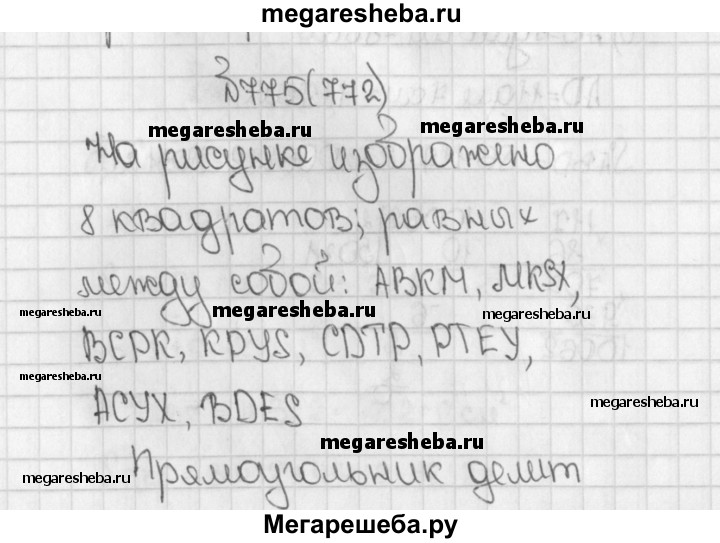 megaresheba.ru
№775(772)
megaresheba.ru
megaresheba.ru
На рисунке изображено
8 квадратов; равных
между собой: ABKM, MKSX,
megaresheba.ru
megaresheba.ru
megaresheba.ru
BCPK, KPYS, CDTP, PTEY,
megaresheba.ru
ACYX, BDES
megaresheba.ru
megaresheba.ru
Прямоугольник делит
megaresheba.ru
megaresheba.ru
Мегарешеба.ру